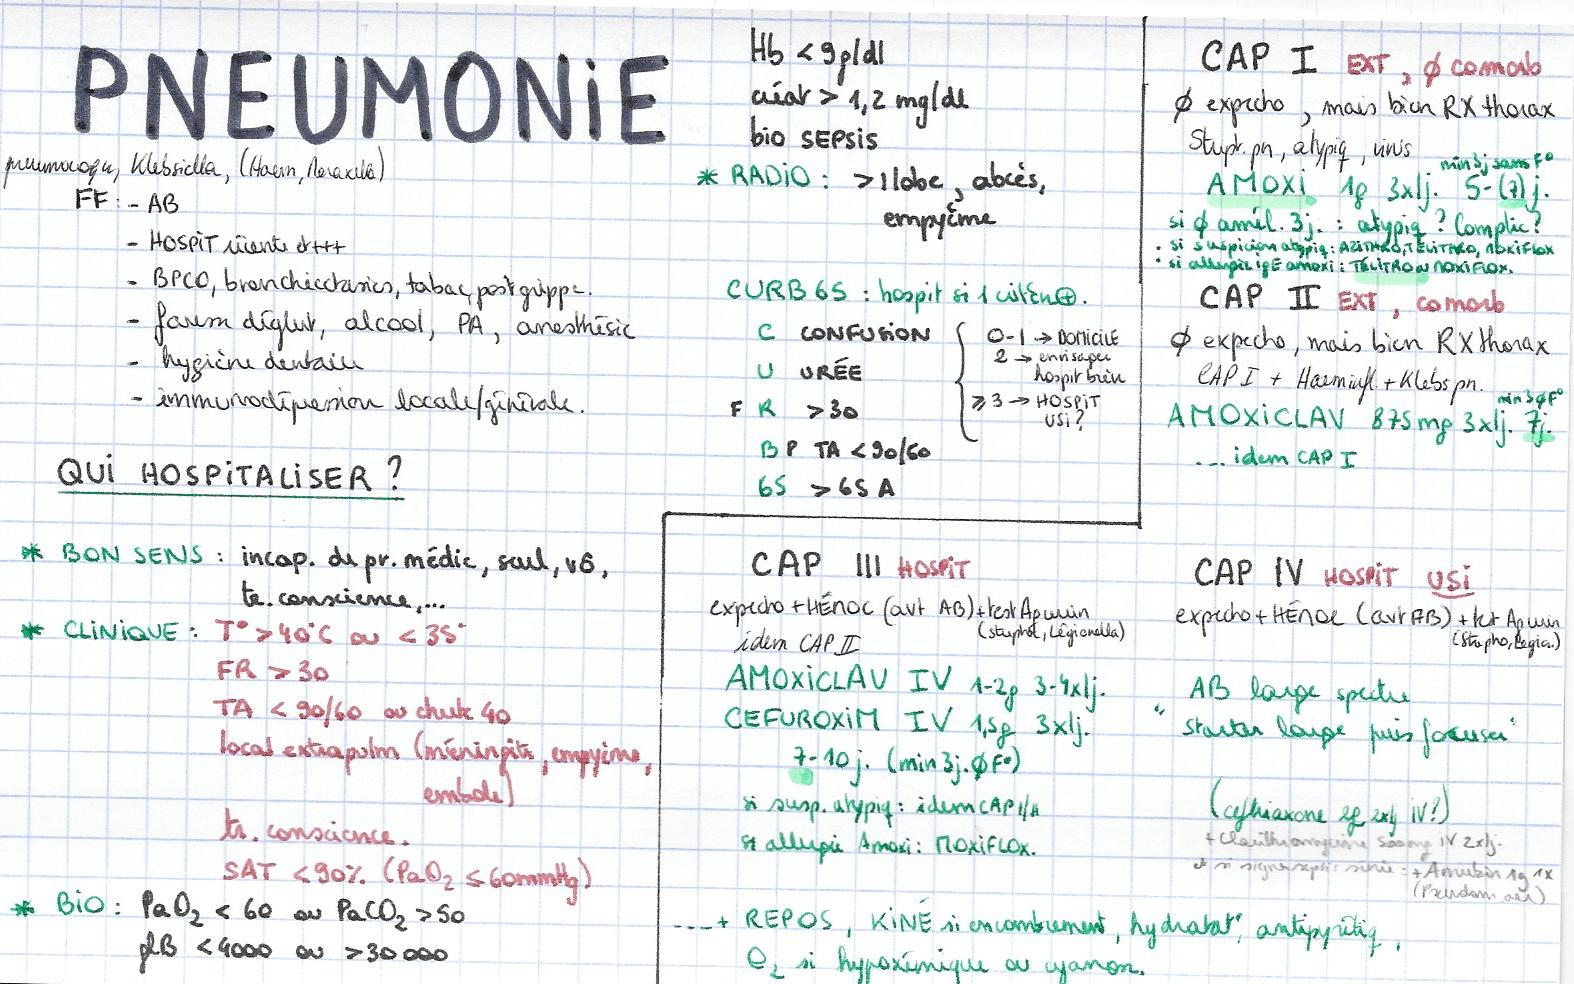 PNEUMONIE
pneumocoqu, Klebsiella, (Haem, Moraxella)
FF: - AB
- HOSPIT récente d+++
- BPCO, bronchiectasies, tabac, post grippe.
- faem déglut, alcool, PA, anesthésie
- hygiène dentaire
- immunodépression locale/générale.
QUI HOSPITALISER ?
* BON SENS : incap. de pr. médic, seul, v6,
tr. conscience,...
* CLINIQUE : T° > 40°C ou < 35°
FR > 30
TA < 90/60 ou chute 40
local extrapulm (méningite, empyème,
embole)
tr. conscience.
SAT < 90% (PaO2 ≤ 60mmHg)
* BIO : PaO2 < 60 ou PaCO2 > 50
glB < 4000 ou > 30 000
Hb < 9g/dl
créat > 1,2 mg/dl
bio SEPSIS
* RADIO : > 1 lobe, abcès,
empyème
CURB 65 : hospit si 1 critèr⊕.
C CONFUSION
U URÉE
F R > 30
B P TA < 90/60
65 > 65 A
0-1 → DOMICILE
2 → envisager
hospit brèv
≥ 3 → HOSPIT
USI ?
CAP I EXT, ∅ comorb
∅ expecto, mais bien RX thorax
Strept. pn, atypiq, virus
min 3j sans F°
AMOXI 1g 3x/j. 5-(7)j.
si ∅ amél. 3j. : atypiq ? Complic ?
• si suspicion atypiq : AZITHRO, TÉLITHRO, MOXIFLOX
• si allergie IgE amoxi : TÉLITRO ou MOXIFLOX.
CAP II EXT, comorb
∅ expecto, mais bien RX thorax
CAP I + Haem infl. + Klebs pn.
min 3j ∅F°
AMOXICLAV 875mg 3x/j. 7j.
... idem CAP I
CAP III HOSPIT
expecto + HÉMOC (avt AB) + test Ag urin
(Stapho, Légionella)
idem CAP II
AMOXICLAV IV 1-2g 3-4x/j.
CEFUROXIM IV 1,5g 3x/j.
7-10j. (min 3j. ∅F°)
si susp. atypiq : idem CAP I/II
si allergie Amoxi : MOXIFLOX.
CAP IV HOSPIT USI
expecto + HÉMOC (avt AB) + test Ag urin
(Stapho, Légio.)
AB large spectre
"starter large puis focuser"
(ceftriaxone 2g 2x/j IV?)
+ Clarithromycine 500mg IV 2x/j.
si signe sepsis sévère : + Amukin 1g 1x
(Pseudom aer)
...+ REPOS, KINÉ si encombrement, hydratat°, antipyrétiq,
O2 si hypoxémique ou cyanon.